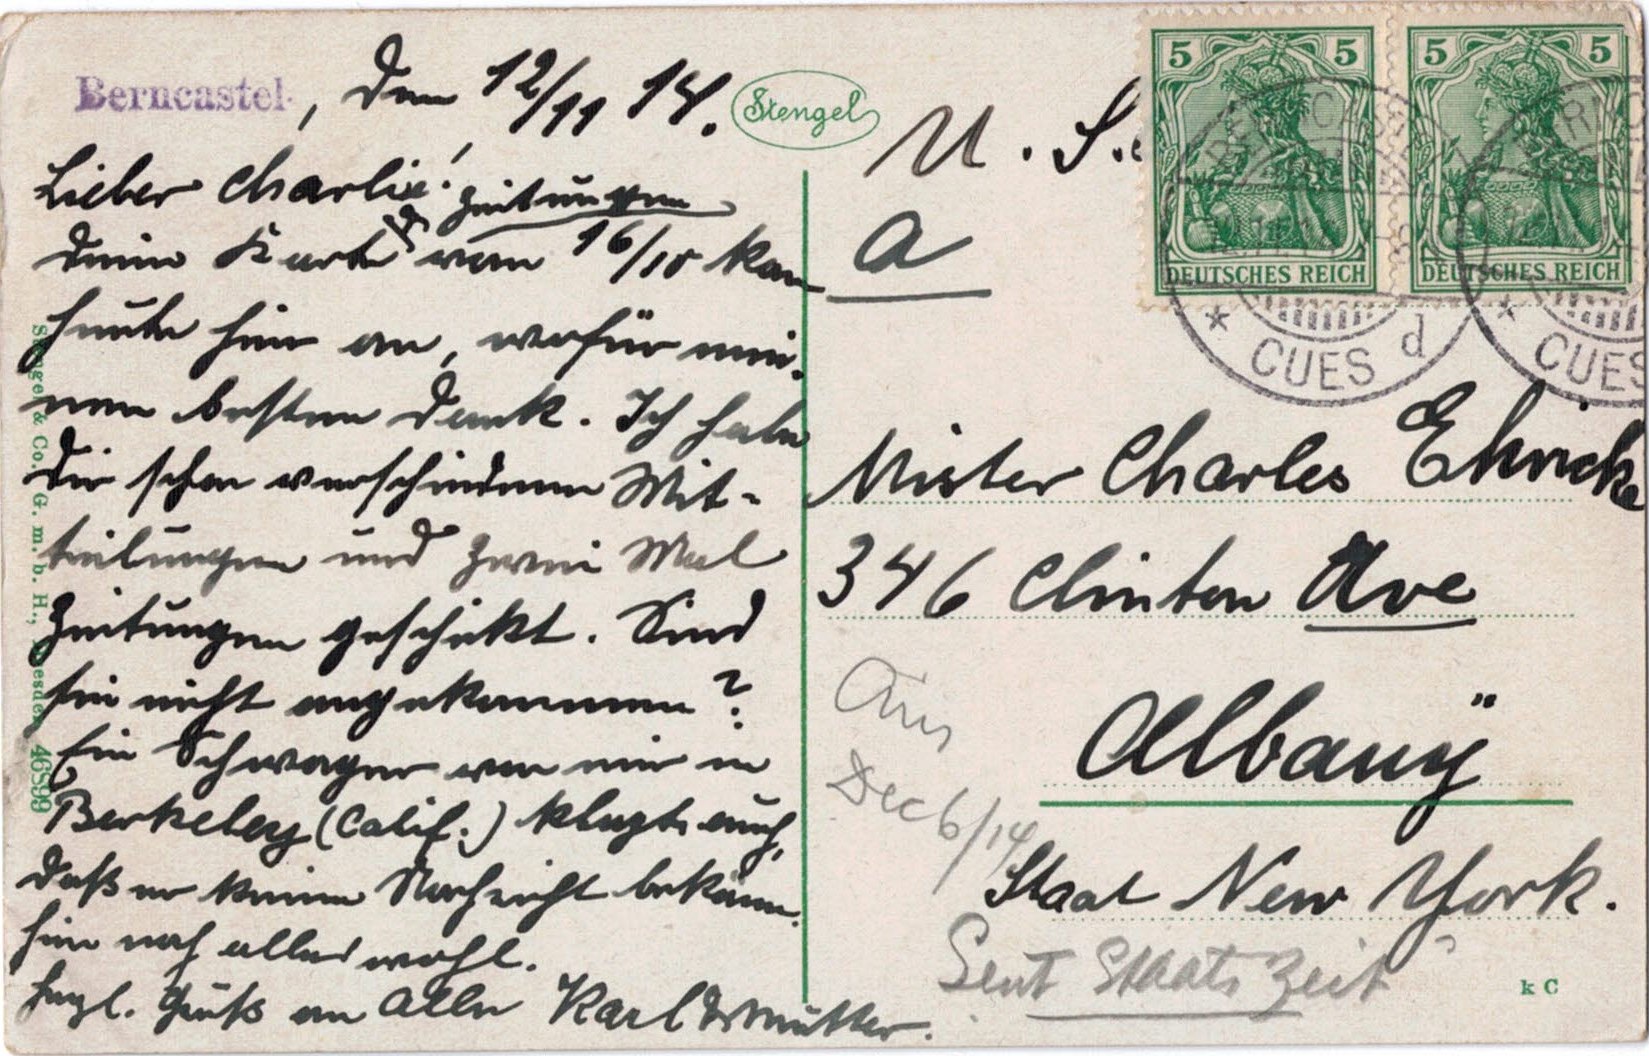 Berncastel, den 12/11 14.
Lieber Charlie!
Zeitungen
Deine Karte & vom 16/10 kam
heute hier an, wofür mei-
nen besten Dank. Ich habe
Dir schon verschiedene Mit-
teilungen und zwei Mal
Zeitungen geschickt. Sind
sie nicht angekommen?
Ein Schwager von mir in
Berkeley (Calif.) klagte auch,
daß er keine Nachricht bekäme.
Hier noch alles wohl.
Herzl. Gruß an Alle Karl & Mutter.
Stengel
Stengel & Co., G. m. b. H., Dresden 46899
U. S.
A
5 5
DEUTSCHES REICH
5 5
DEUTSCHES REICH
CUES d
CUES
Mister Charles Ehricke
346 Clinton Ave
Albany
Staat New York.
Ans
Dec 6/14
Sent Staats Zeit
k C